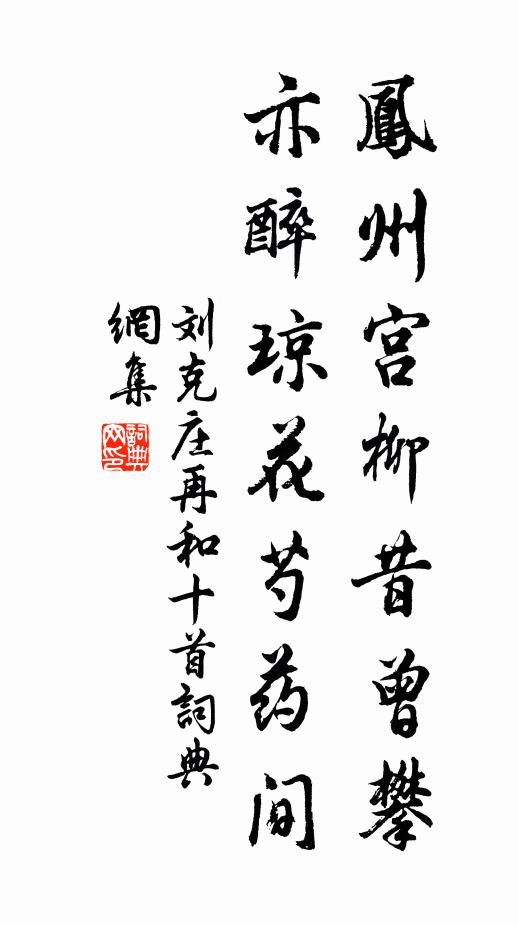 鳳州宫柳昔曾攀
亦醉琼花芍药间
刘克庄再和十首詞典
網集
詞典
网印